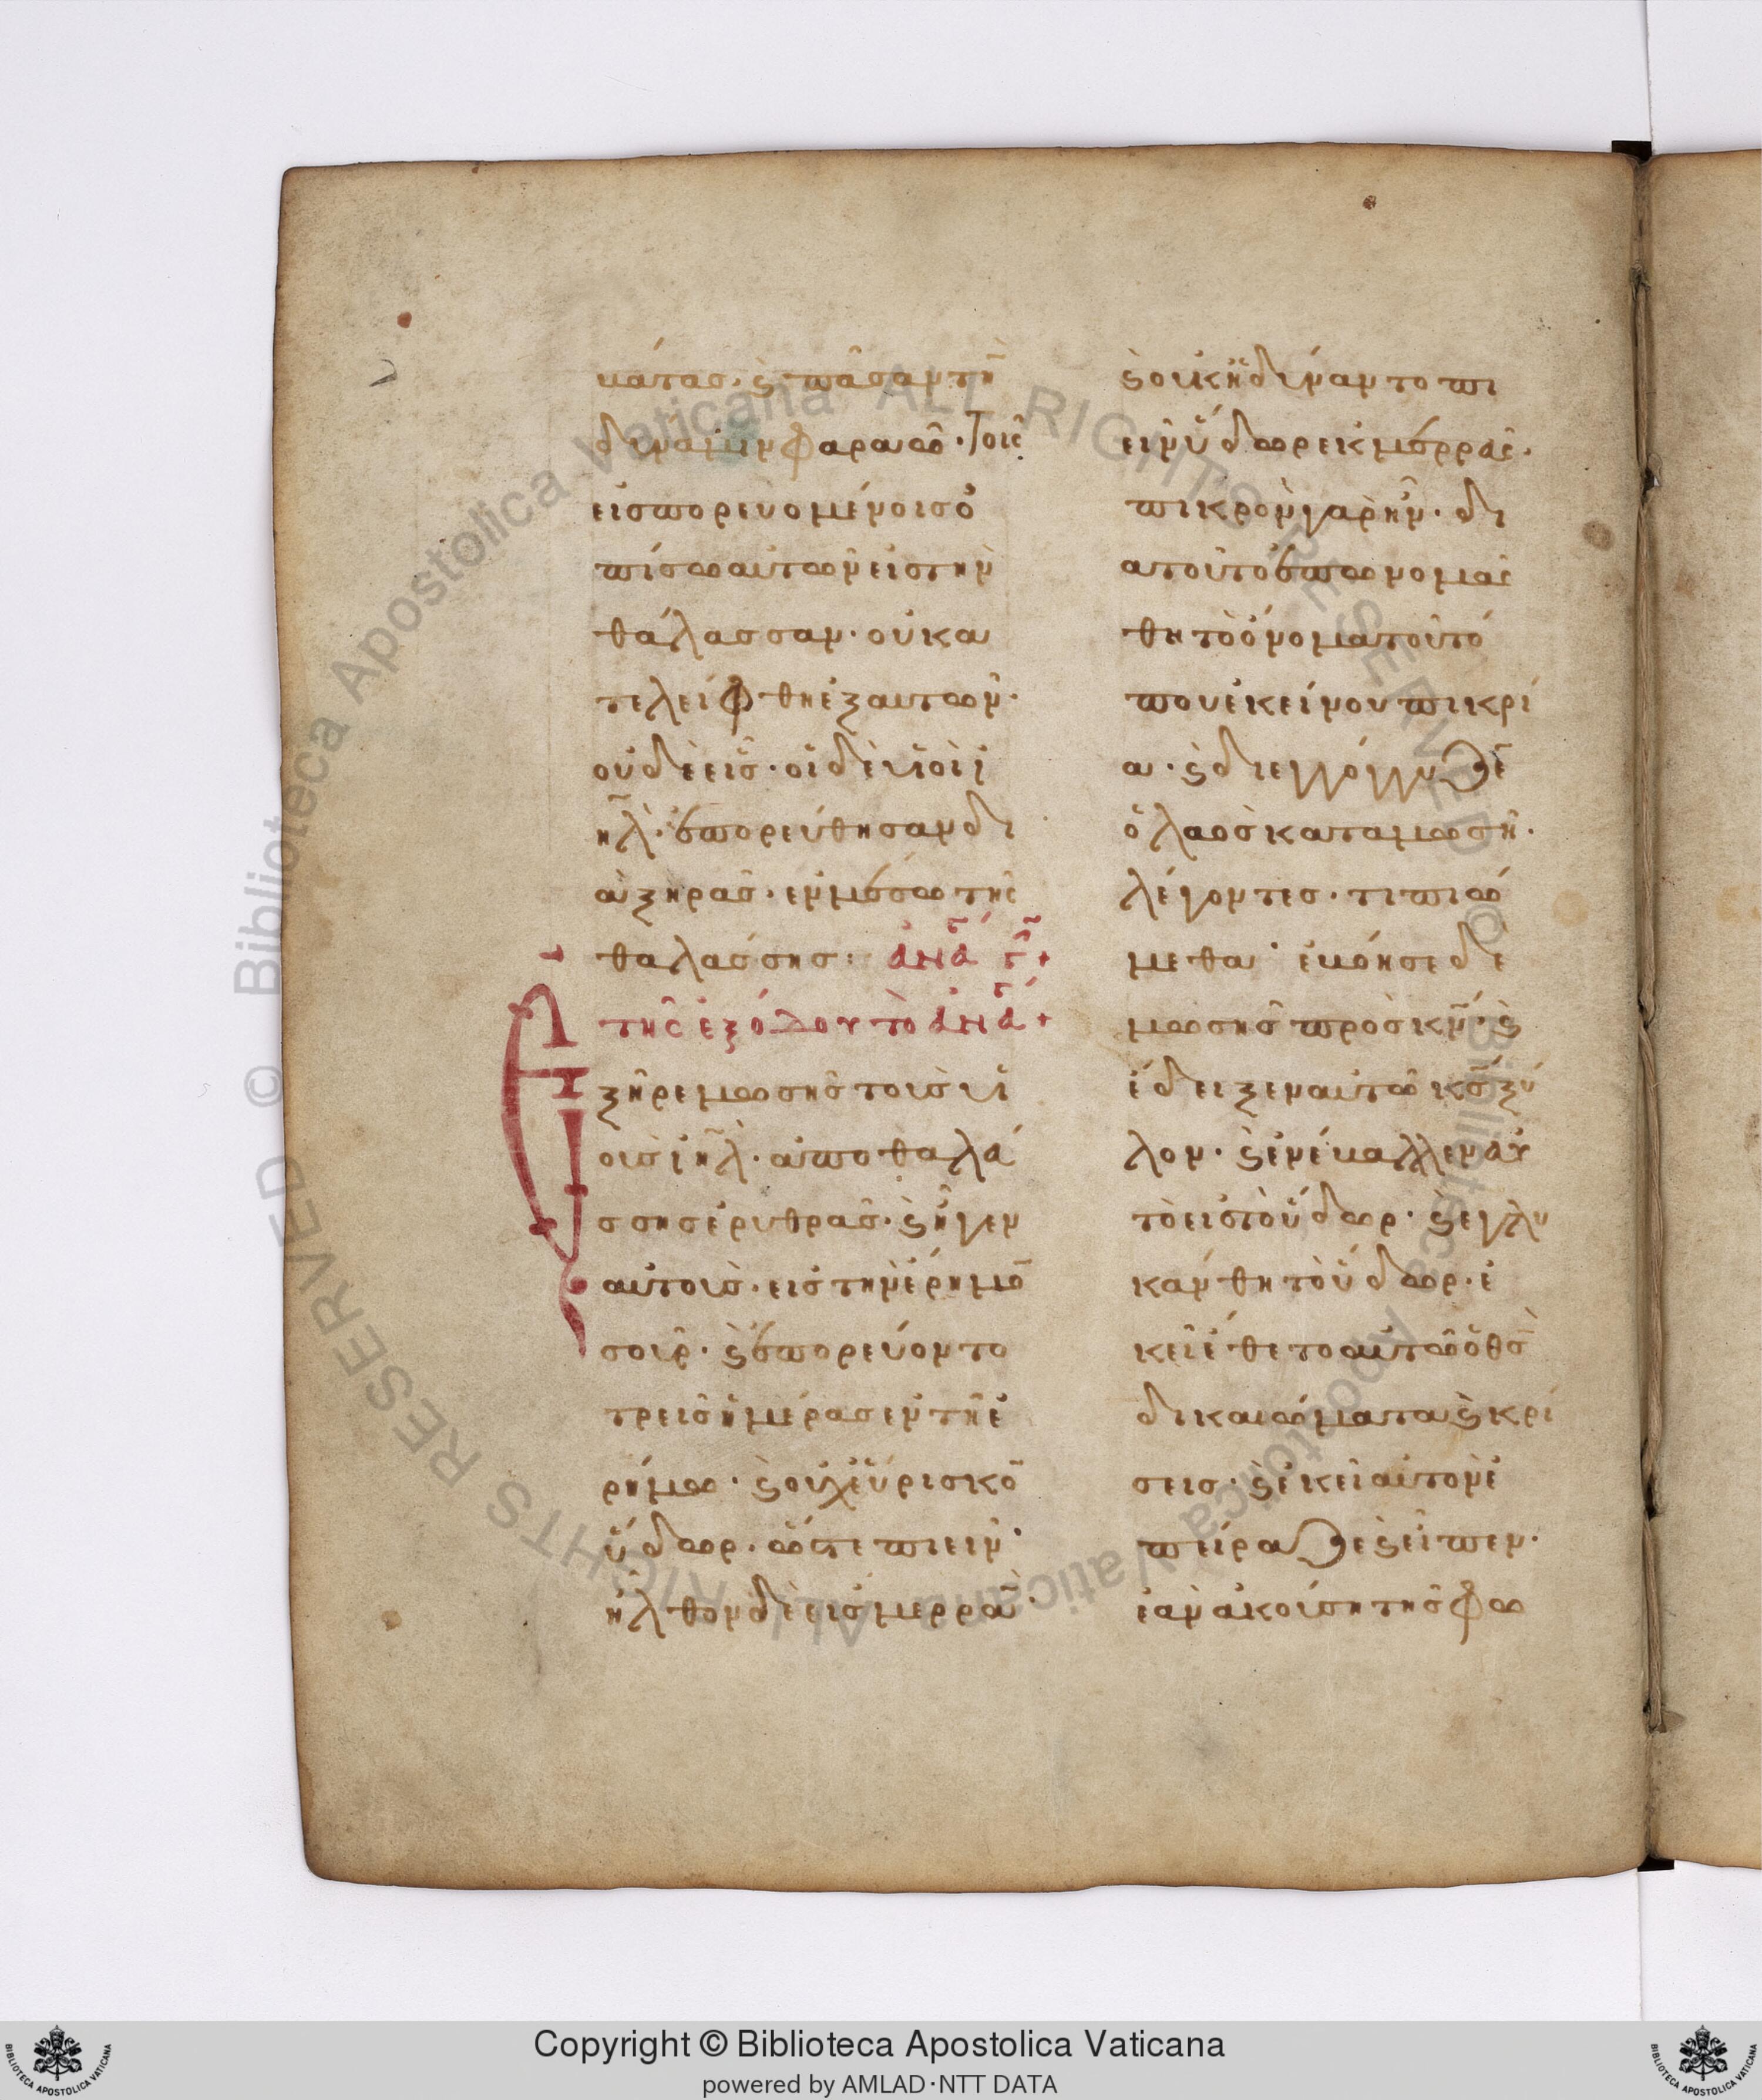 βάτας· ϗ πᾶσαν τὴν
δύναμιν φαραώ· τοὺς
εἰσπορευομένους ὀ
πίσω αὐτῶν εἰς τὴν
θάλασσαν· οὐ κα
τελείφθη ἐξ αὐτῶν·
οὐδὲ εἷς· οἱ δὲ υἱοὶ ι
ηλ· ἐπορεύθησαν δι
ὰ ξηρᾶς· ἐν μέσω τῆς
θαλάσσης: ἀνα
τῆς ἐξόδου τὸ ἀνα
Ἐξῆρε μωσῆς τοὺς υἱ
οὺς ιηλ· ἀπὸ θαλά
σσης ἐρυθρᾶς· ϗ ἤγεν
αὐτοὺς· εἰς τὴν ἔρημο
σούρ· ϗ ἐπορεύοντο
τρεῖς ἡμέρας ἐν τῆ ἐ
ρήμω· ϗ οὐχ εὕρισκο
ὕδωρ· ὥστε πιεῖν·
ἦλθον δὲ εἰς μερρᾶ·
ϗ οὐκ ἠδύναντο πι
εῖν ὕδωρ ἐκ μέρρας·
πικρὸν γὰρ ἦν· δι
α τοῦτο ἐπωνομάς
θη τὸ ὄνομα τοῦ τό
που ἐκείνου πικρί
α· ϗ διεγόγγυζε
ὁ λαὸς κατὰ μωσῆ·
λέγοντες· τι πιώ
μεθα· ἐβόησε δὲ
μωσῆς πρὸς κν· ϗ
ἔδειξεν αὐτῶ κς ξύ
λον· ϗ ἐνέβαλλεν αὐ
τὸ εἰς τὸ ὕδωρ· ϗ ἐγλυ
κάνθη τὸ ὕδωρ· ἐ
κεῖ ἔθετο αὐτῶ ὁ θς
δικαιώματα ϗ κρί
σεις· ϗ ἐκεῖ αὐτὸν ἐ
πείραζε ϗ εἶπεν·
ἐὰν ἀκούση τῆς φω
Copyright © Biblioteca Apostolica Vaticana
powered by AMLAD·NTT DATA